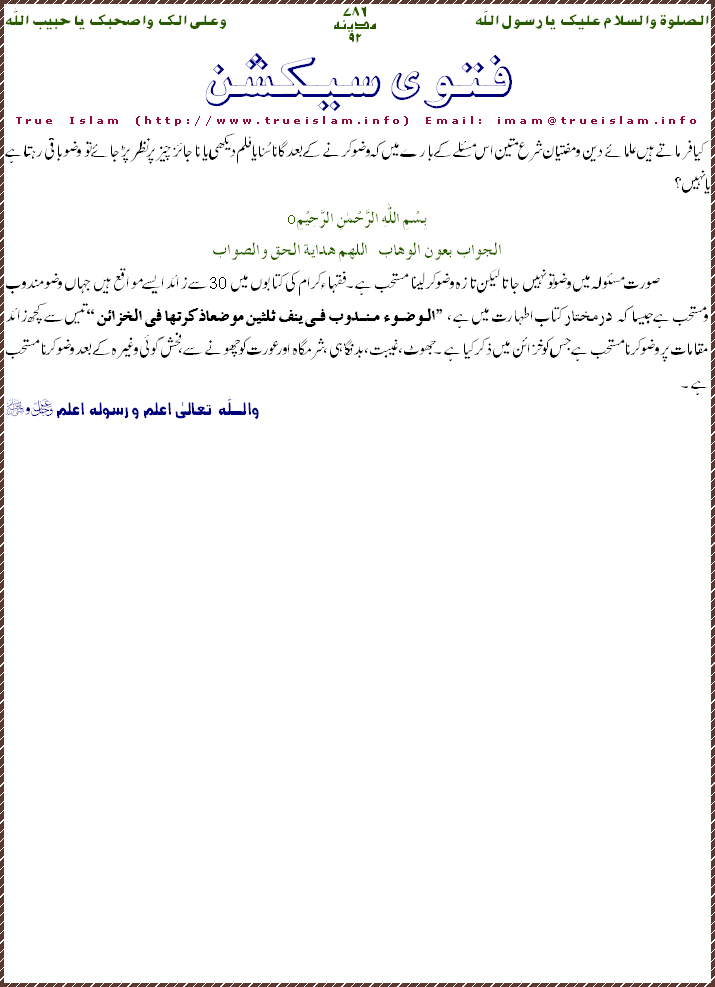 الصلوة والسلام علیک یارسول اللہ
۷۸۶
مدینه
۹۲
وعلی الک واصحبک یا حبیب اللہ
فتوی سیکشن
True Islam (http://www.trueislam.info) Email: imam@trueislam.info
کیا فرماتے ہیں علمائے دین و مفتیان شرع متین اس مسئلے کے بارے میں کہ وضو کرنے کے بعد گانا سُنا یا فلم دیکھی یا نا جائز چیز پر نظر پڑ جائے تو وضو باقی رہتا ہے
یا نہیں؟
بِسْمِ اللّٰہِ الرَّحْمٰنِ الرَّحِیْمِo
الجواب بعون الوھاب اللھم ھدایة الحق والصواب
صورت مسئولہ میں وضو تو نہیں جاتا لیکن تازہ وضو کر لینا مستحب ہے۔ فقہاء کرام کی کتابوں میں 30 سے زائد ایسے مواقع ہیں جہاں وضو مندوب
و مستحب ہے جیسا کہ در مختار کتاب اطہارت میں ہے، ”الوضوء مندوب فی ینف ثلثین موضعاذ کرتھا فی الخزائن“ تیس سے کچھ زائد
مقامات پر وضو کرنا مستحب ہے جس کو خزائن میں ذکر کیا ہے۔ جھوٹ، غیبت، بدنگاہی، شرمگاہ اور عورت کو چھونے سے، فحش گوئی وغیرہ کے بعد وضو کرنا مستحب
ہے۔
واللّٰہ تعالیٰ اعلم و رسولہ اعلم عزوجل و ﷺ